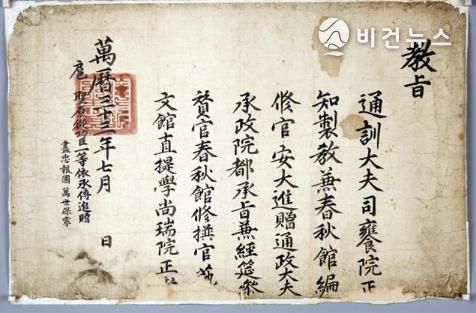 비건뉴스
教旨
通訓大夫司饔院正
知製教兼春秋館編
修官安大進贈通政大夫
承政院都承旨兼經筵參
贊官春秋館修撰官藝
文館直提學尚瑞院正者
萬曆三十三年七月 日
扈聖原從功臣一等依承傳追贈
盡忠報國 萬世保寧